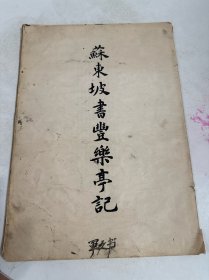 蘇東坡書豐樂亭記